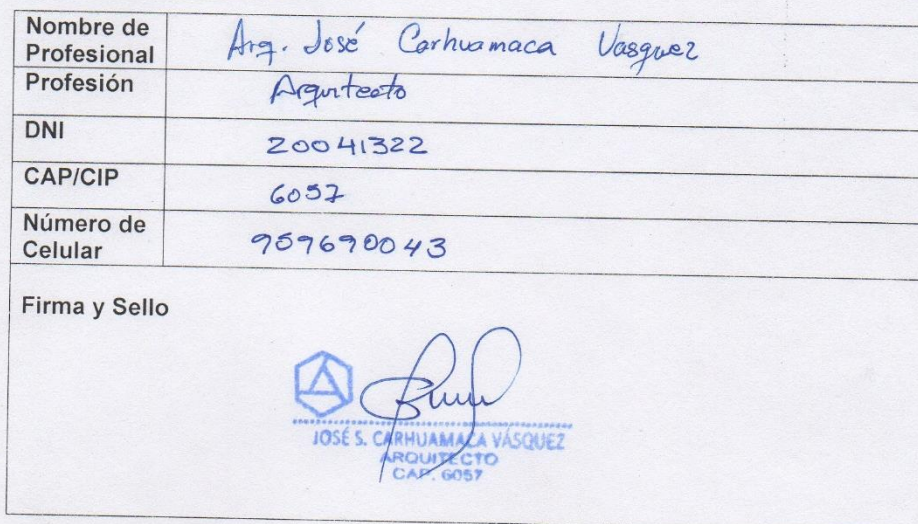 Nombre de Profesional Arq. José Carhuamaca Vasquez
Profesión Arquitecto
DNI 20041322
CAP/CIP 6057
Número de Celular 959690043
Firma y Sello
JOSÉ S. CARHUAMACA VÁSQUEZ
ARQUITECTO
CAP. 6057